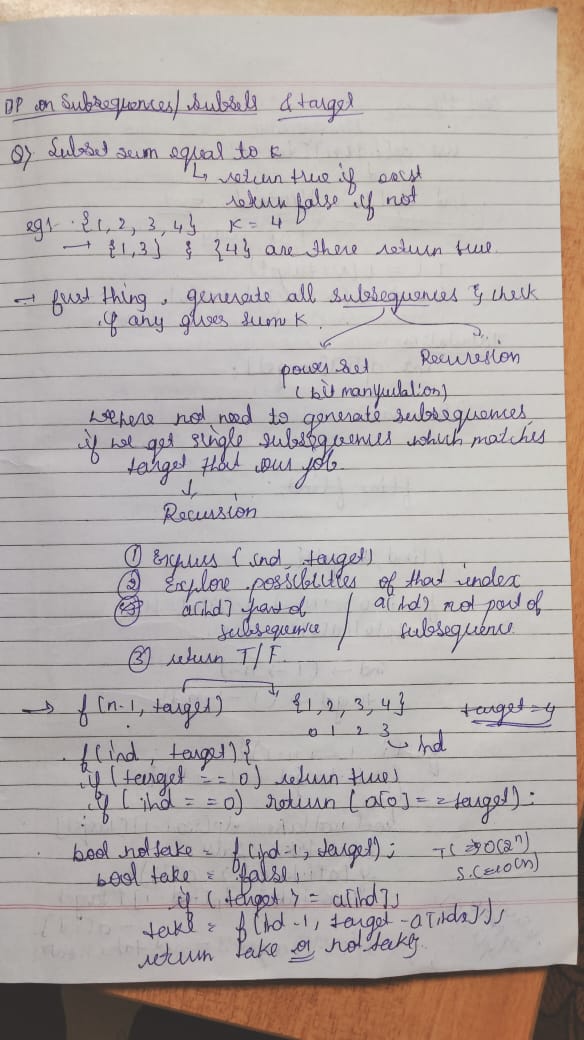 DP on Subsequences/ Subsets & target
Q) Subset sum equal to K
↳ return true if exist
return false if not
eg1 · {1, 2, 3, 4} K = 4
→ {1,3} & {4} are there return true.
→ first thing, generate all subsequences & check
if any gives sum K.
power set Recursion
(bit manipulation)
where not need to generate subsequences,
if we get single subsequences which matches
target that our job.
↓
Recursion
① Express (ind, target)
② Explore possibilities of that index
a[ind] part of / a[ind] not part of
subsequence / subsequence.
③ return T/F.
→ f(n-1, target) {1, 2, 3, 4} target = 4
0 1 2 3 → ind
f(ind, target) {
if (target == 0) return true;
if (ind == 0) return (a[0] == target);
bool nottake = f(ind-1, target); T.C ⇒ O(2ⁿ)
bool take = false; S.C ⇒ O(n)
if (target >= a[ind])
take = f(ind-1, target - a[ind]);
return take or nottake}